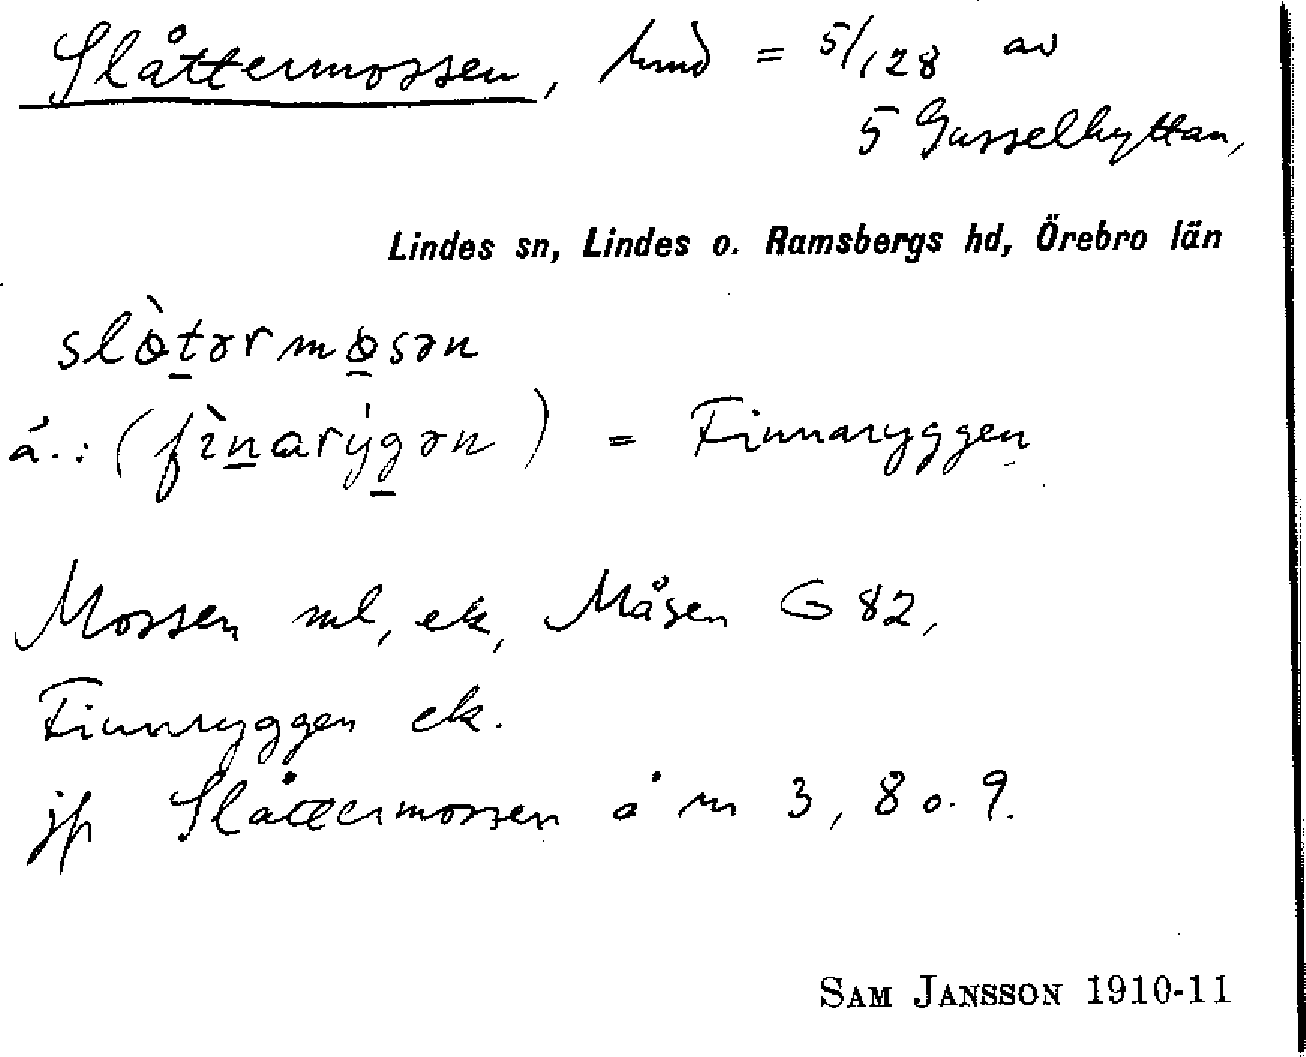 Slåttermossen, hmd = 5/128 av
5 Gusselhyttan,
Lindes sn, Lindes o. Ramsbergs hd, Örebro län
slò̱tərmo̱sən
å.: (fìṉarýg̱ən) = Finnaryggen
Mossen ml, ek, Måsen G 82,
Finnryggen ek.
jfr Slåttermossen å nr 3, 8 o. 9.
SAM JANSSON 1910-11